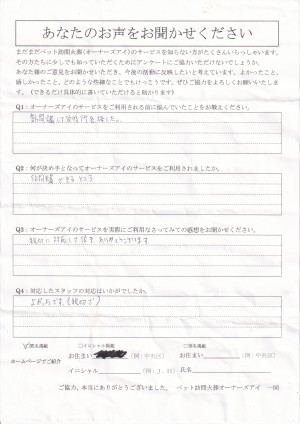 あなたのお声をお聞かせください
まだまだペット訪問火葬(オーナーズアイ)のサービスを知らない方がたくさんいらっしゃいます。
その方たちに少しでも知っていただくためにアンケートにご協力いただけないでしょうか。
あなた様のご意見をお聞かせいただき、今後の活動に反映したいと考えています。よかったこと、
嬉しかったこと、どのような些細なことでもけっこうです。ぜひご協力をよろしくお願いいたしま
す。(できるだけ具体的に書いていただけると助かります)
Q1：オーナーズアイのサービスをご利用される前に悩んでいたことをお教えください。
Q2：何が決め手となってオーナーズアイのサービスをご利用されましたか。
できるところ
Q3：オーナーズアイのサービスを実際にご利用なさってみての感想をお聞かせください。
親切に対応して頂きありがとうございます
Q4：対応したスタッフの対応はいかがでしたか。
よかったです。(親切で)
ホームページでご紹介
□匿名掲載 □イニシャル掲載 □実名掲載
お住まい (例：中央区) お住まい (例：中央区)
イニシャル (例：J.H) 氏名
ご協力、本当にありがとうございました。 ペット訪問火葬オーナーズアイ 一同